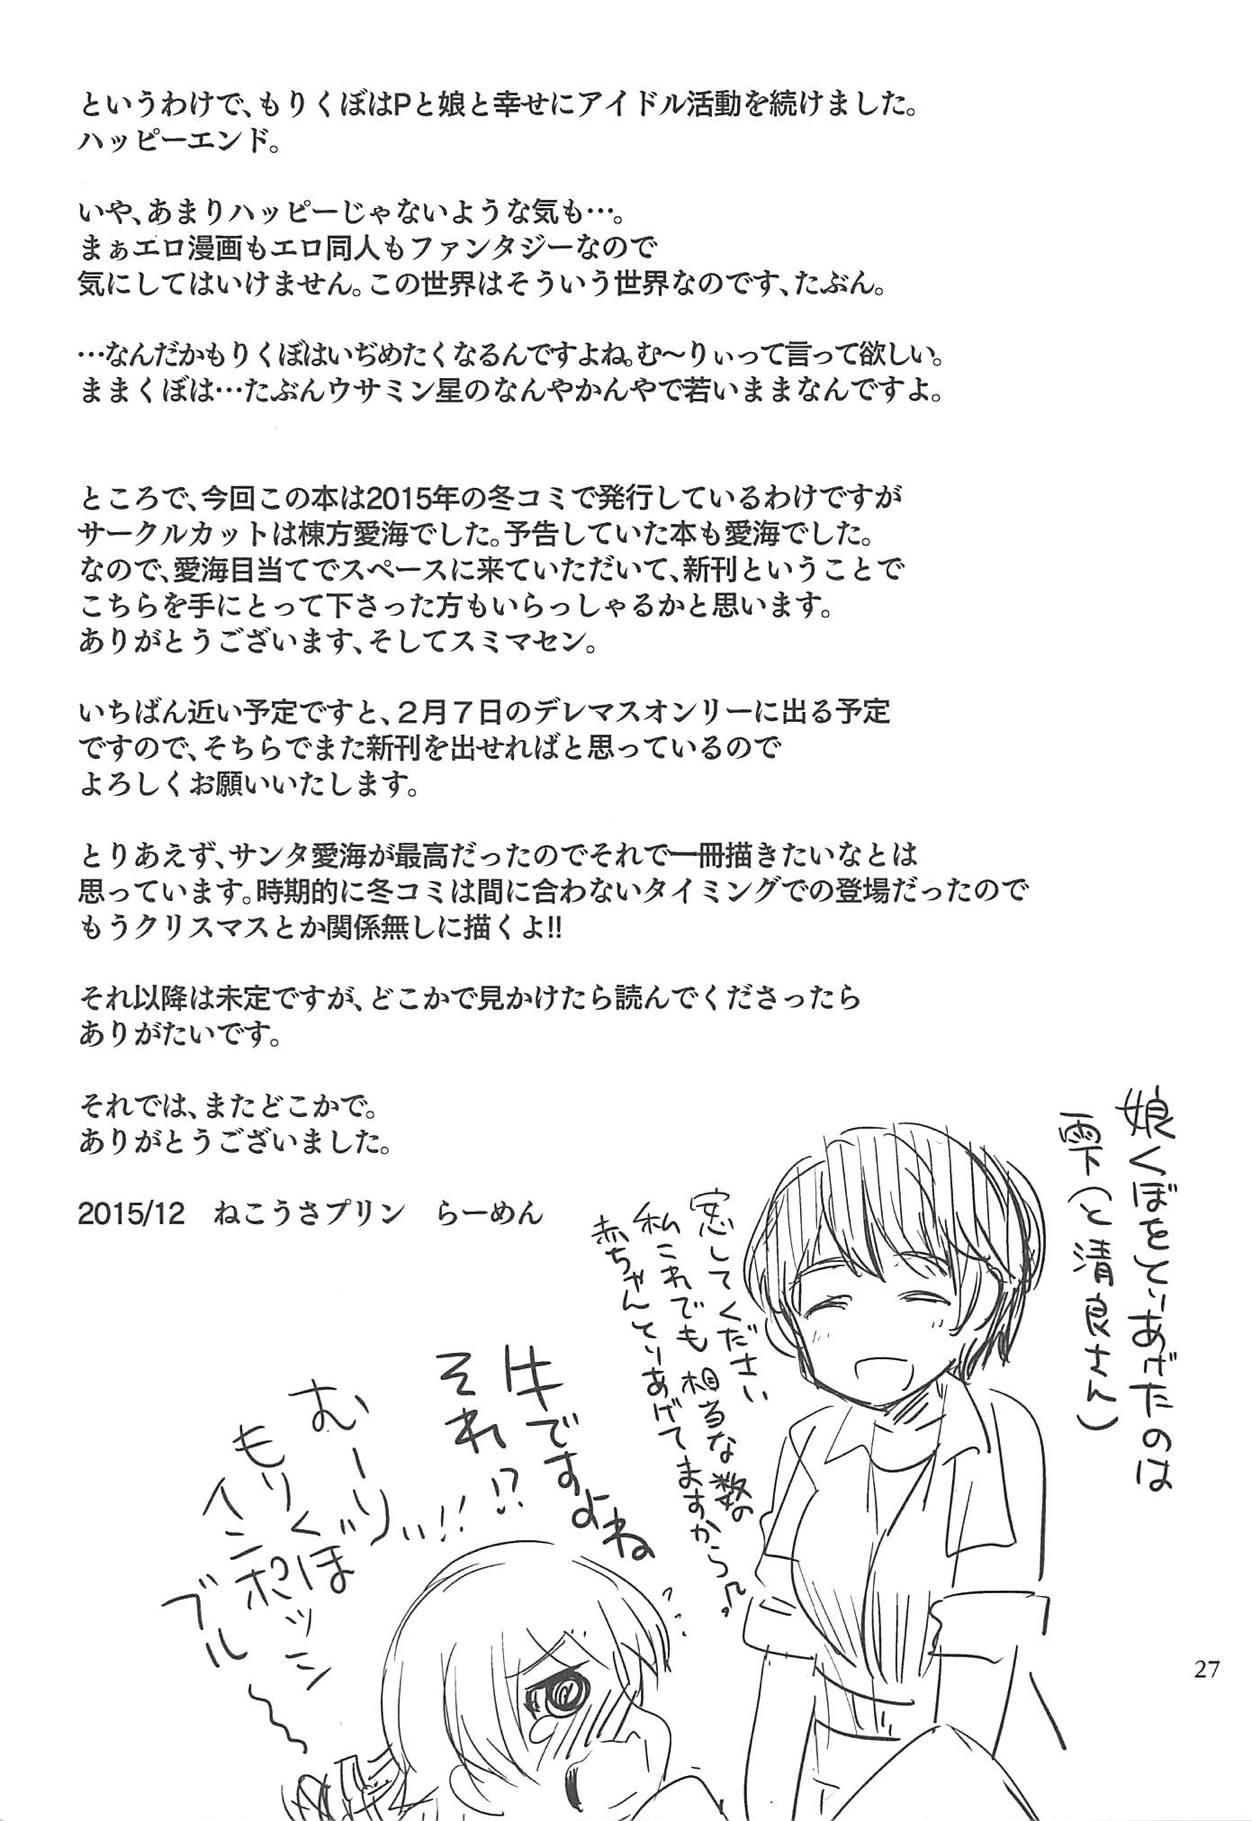 というわけで、もりくぼはPと娘と幸せにアイドル活動を続けました。
ハッピーエンド。
いや、あまりハッピーじゃないような気も…。
まぁエロ漫画もエロ同人もファンタジーなので
気にしてはいけません。この世界はそういう世界なのです、たぶん。
…なんだかもりくぼはいぢめたくなるんですよね。む〜りぃって言って欲しい。
ままくぼは…たぶんウサミン星のなんやかんやで若いままなんですよ。
ところで、今回この本は2015年の冬コミで発行しているわけですが
サークルカットは棟方愛海でした。予告していた本も愛海でした。
なので、愛海目当てでスペースに来ていただいて、新刊ということで
こちらを手にとって下さった方もいらっしゃるかと思います。
ありがとうございます、そしてスミマセン。
いちばん近い予定ですと、２月７日のデレマスオンリーに出る予定
ですので、そちらでまた新刊を出せればと思っているので
よろしくお願いいたします。
とりあえず、サンタ愛海が最高だったのでそれで一冊描きたいなとは
思っています。時期的に冬コミは間に合わないタイミングでの登場だったので
もうクリスマスとか関係無しに描くよ!!
それ以降は未定ですが、どこかで見かけたら読んでくださったら
ありがたいです。
それでは、またどこかで。
ありがとうございました。
2015/12　ねこうさプリン　らーめん
娘くぼをとりあげたのは
雫(と清良さん)
安心してください
私これでも相当な数の
赤ちゃんとりあげてますから♪
牛ですよね
それ!?
むーりぃ!!
もりくぼは
ニンポッシ
ブル
27